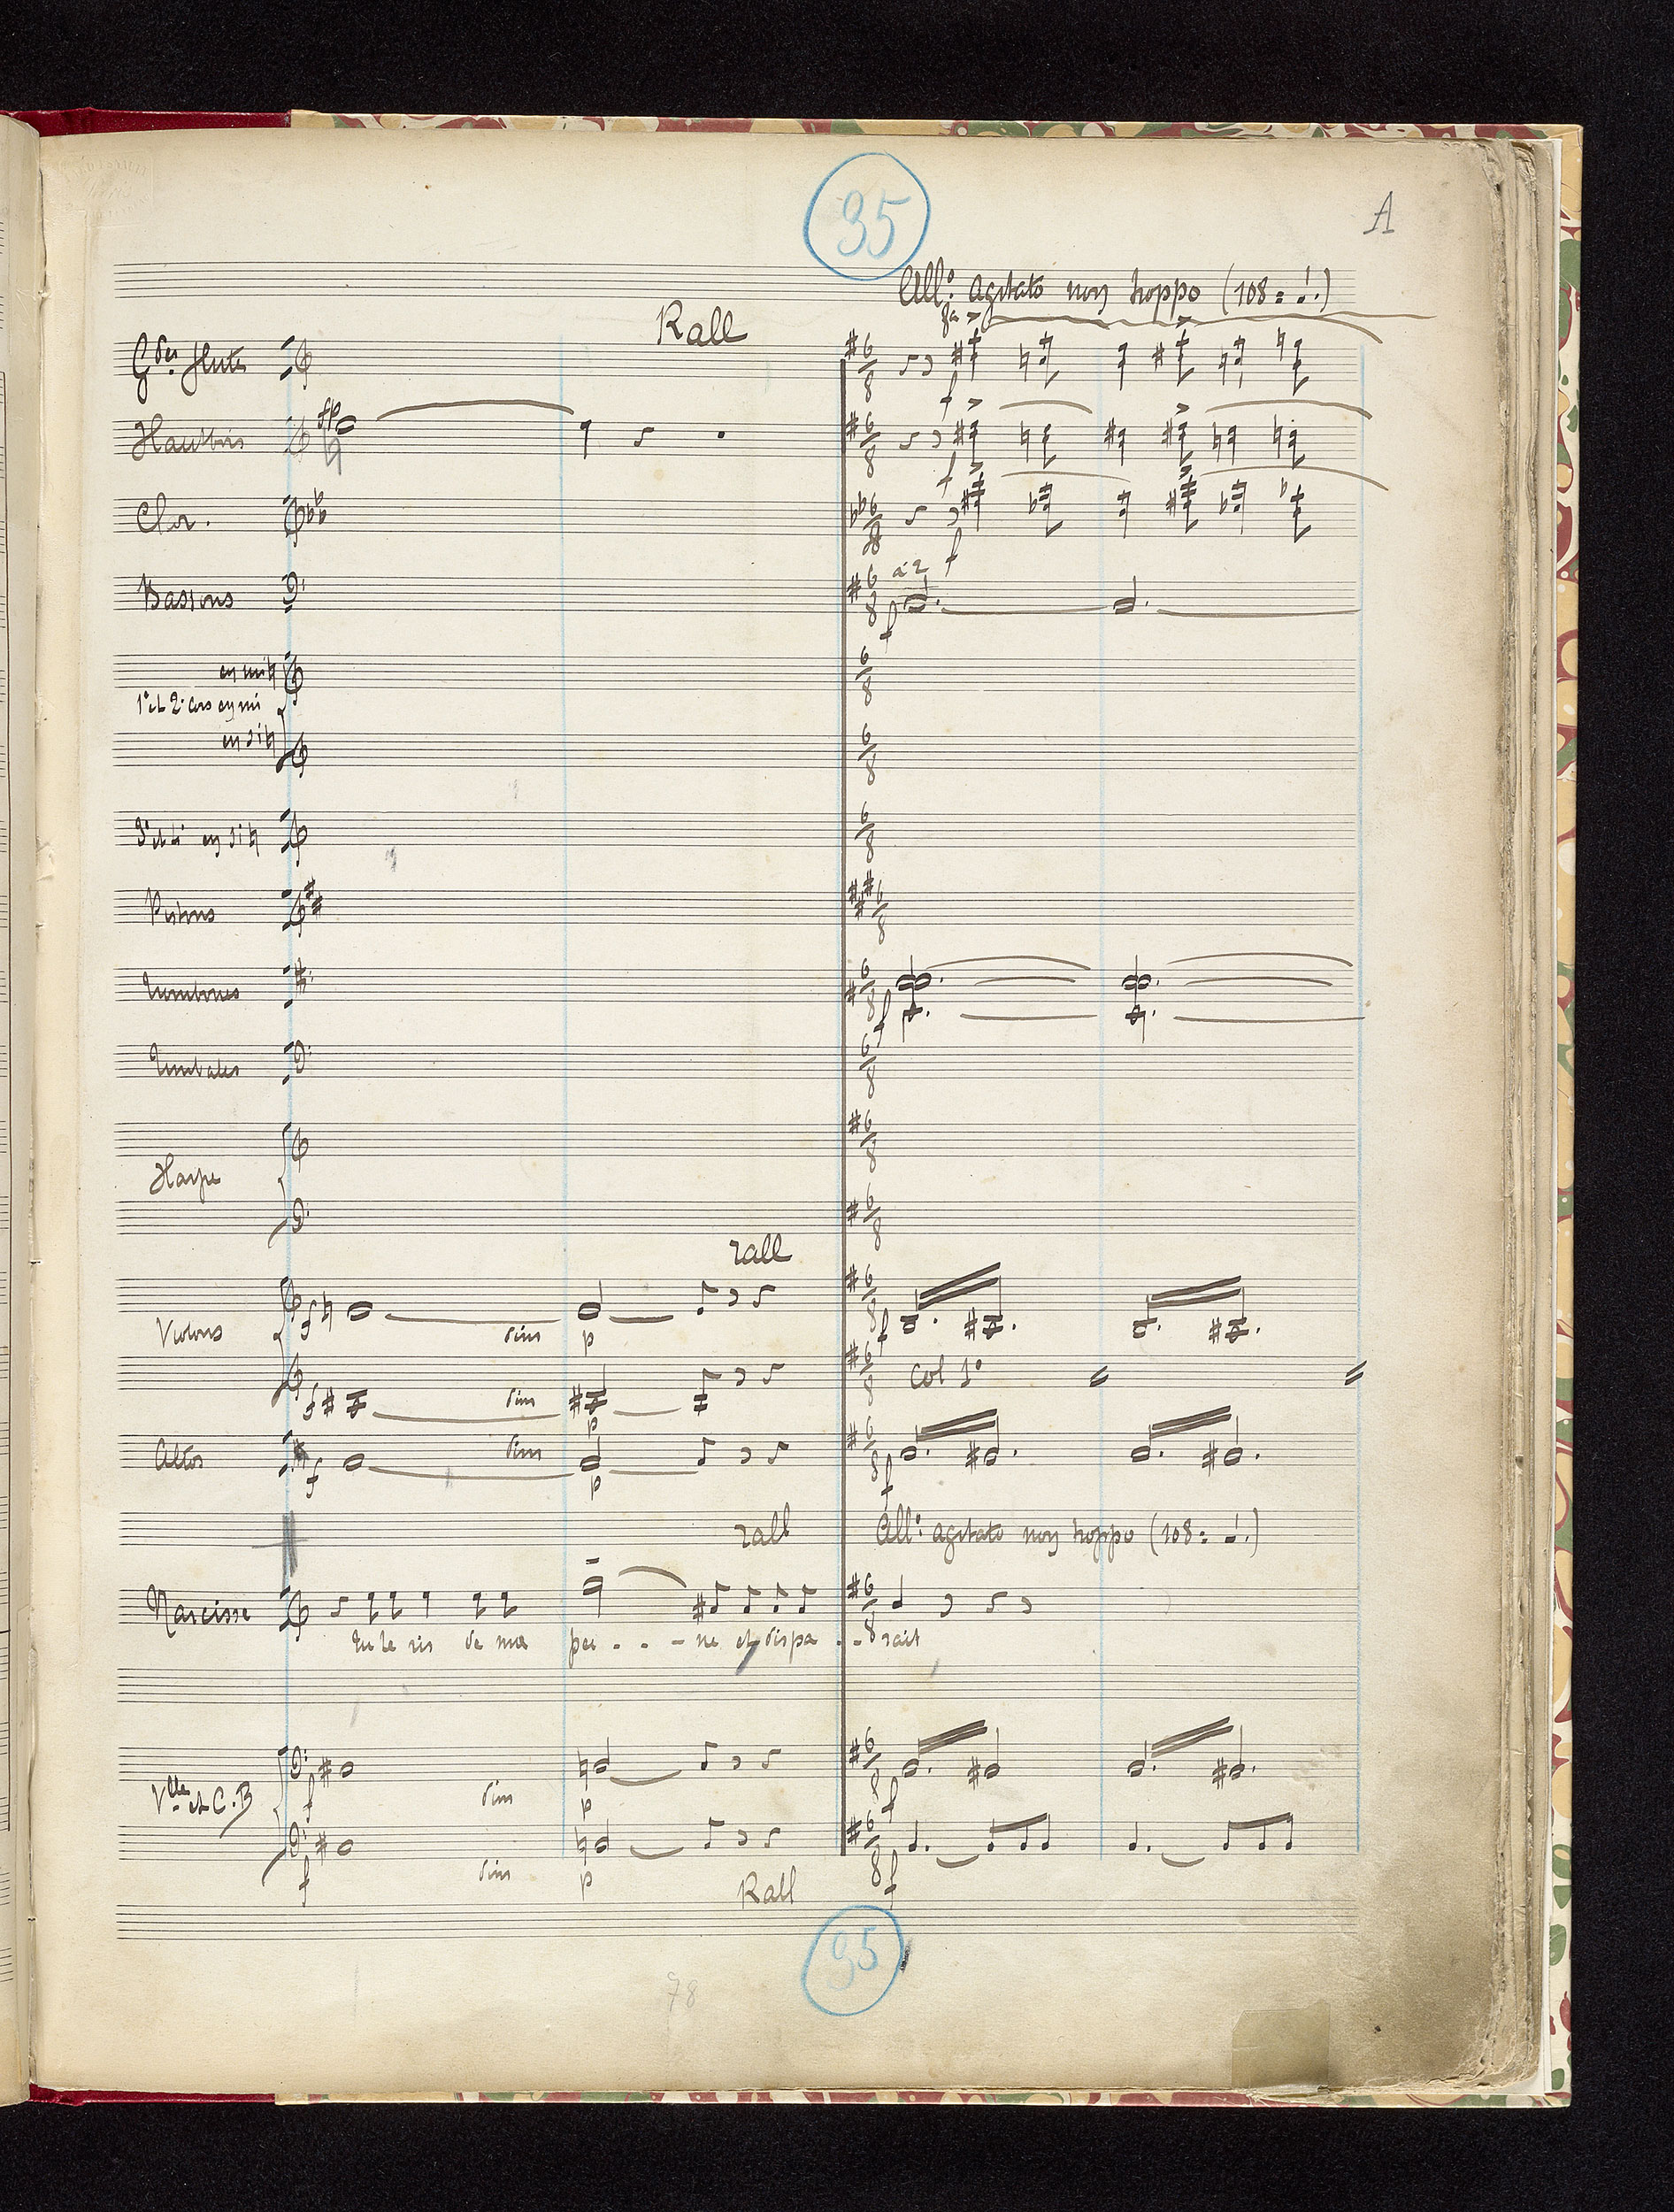 35
A
All° agitato non troppo (108 = ♩.)
8a
Rall
Gdes flutes
f
Hautbois
fp
f
Clar.
f
Bassons
a 2
f
en mi♮
1° et 2° cors en mi
en si♮
3° et 4° en si♮
Pistons
Trombones
f
Timbales
Harpe
rall
Violons
f
dim
p
f
f
dim
p
Col 1°
Altos
f
dim
p
f
rall
All° agitato non troppo (108 = ♩.)
Narcisse
Tu te ris de ma pei - - - ne et dispa - - rait
Vlle et C.B
f
dim
p
f
f
dim
p
f
Rall
35
78
6/8